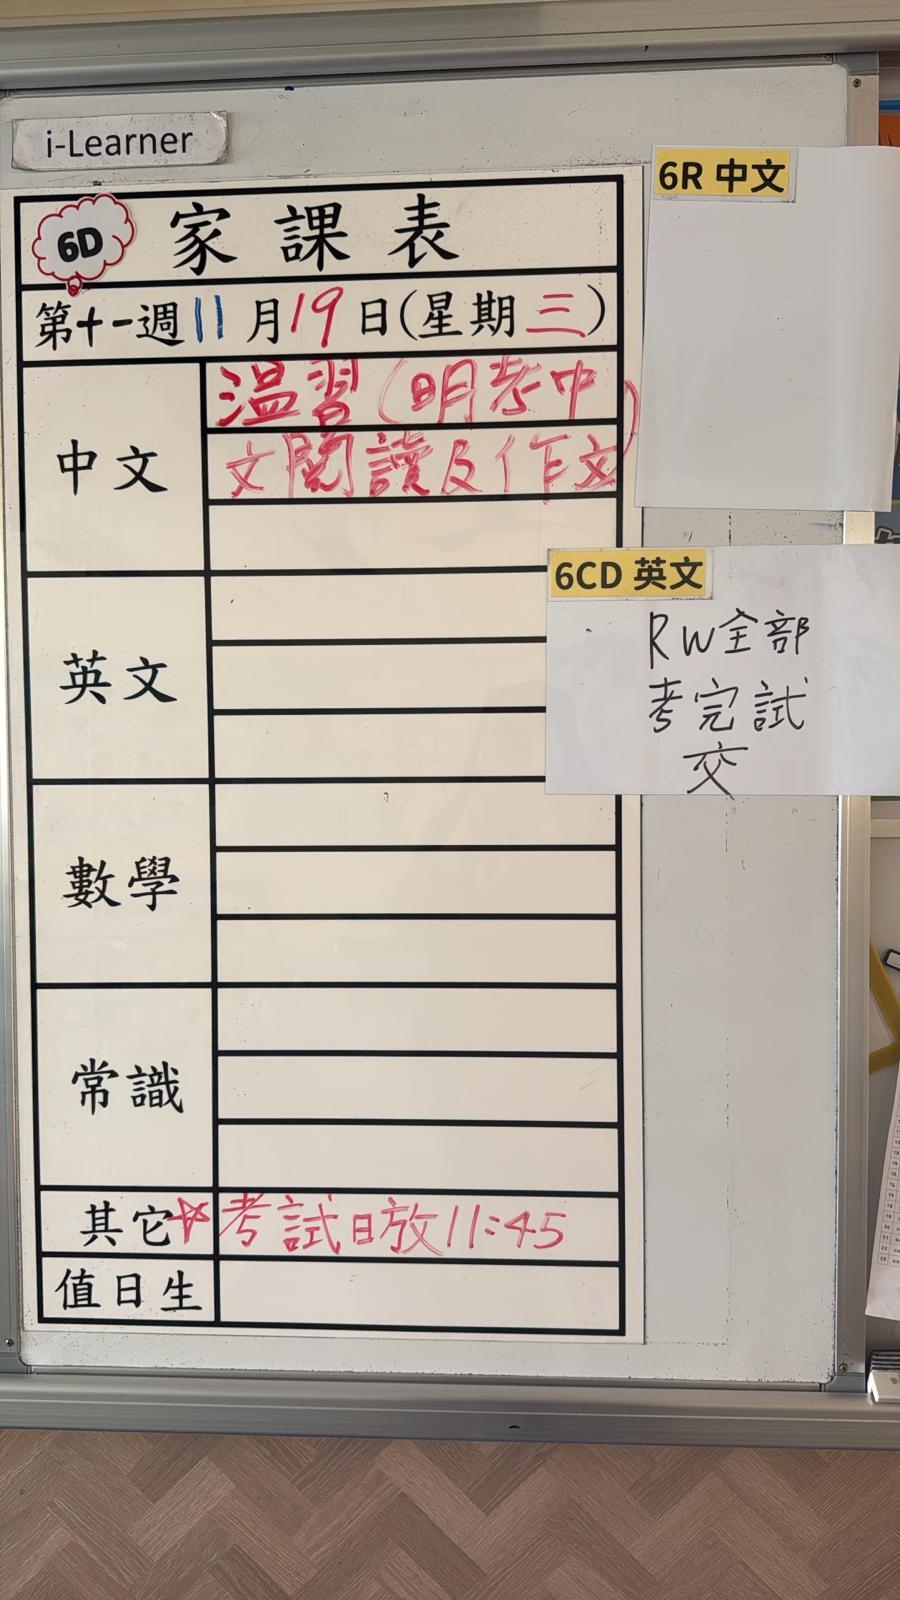 i-Learner
6D 家課表
第十一週 11月19日(星期三)
中文
温習(明考中
文閱讀及作文)
英文
數學
常識
其它☆考試日放11:45
值日生
6R 中文
6CD 英文
RW全部
考完試
交